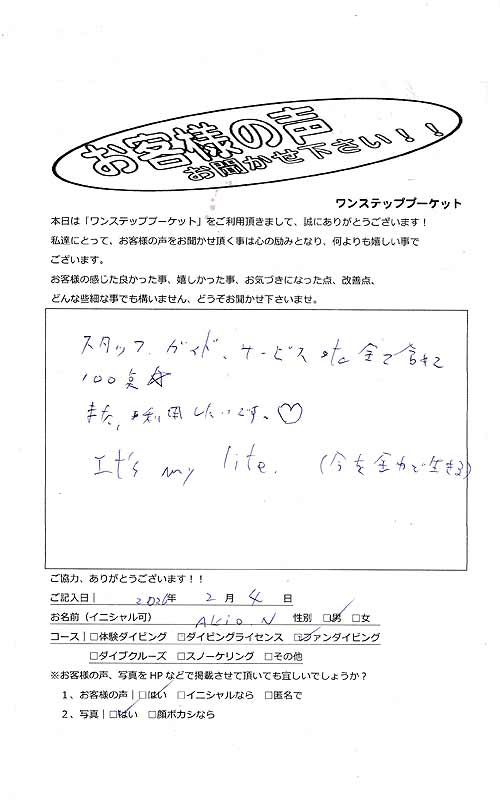 お客様の声
お聞かせ下さい！！
ワンステッププーケット
本日は「ワンステッププーケット」をご利用頂きまして、誠にありがとうございます！
私達にとって、お客様の声をお聞かせ頂く事は心の励みとなり、何よりも嬉しい事で
ございます。
お客様の感じた良かった事、嬉しかった事、お気づきになった点、改善点、
どんな些細な事でも構いません、どうぞお聞かせ下さいませ。
スタッフ、ガイド、サービス etc 全て含めて
100点☆
また、利用したいです。♡
It's my life. (今を全力で生きる)
ご協力、ありがとうございます！！
ご記入日｜ 2026年 2 月 4 日
お名前（イニシャル可） AKio N 性別 □男 □女
コース｜□体験ダイビング □ダイビングライセンス □ファンダイビング
□ダイブクルーズ □スノーケリング □その他
※お客様の声、写真を HP などで掲載させて頂いても宜しいでしょうか？
1、お客様の声｜□はい □イニシャルなら □匿名で
2、写真｜□はい □顔ボカシなら